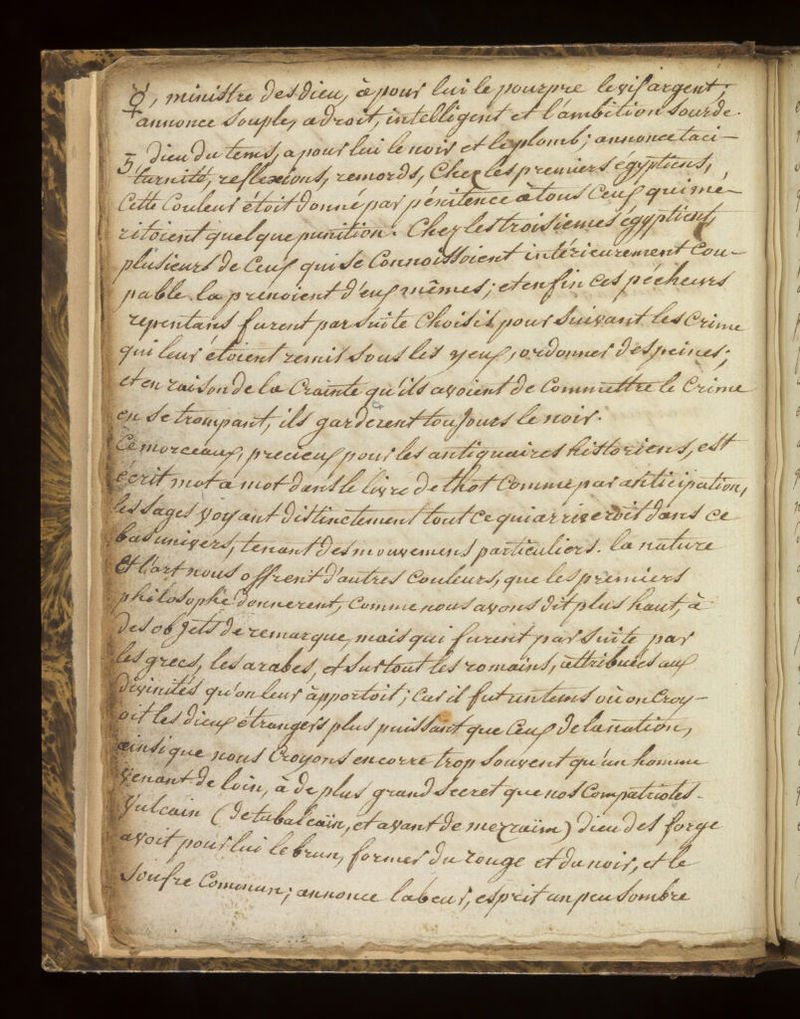 ☿, ministre des dieu, à pour lui le pourpre le vif argent;
annonce souple, adroit, intelligent et l'ambition sourde.
♄, Dieu du tems, a pour lui le noir et le plomb; annonce taci-
turnité, reflexions, remords, Chez les premiers égyptiens,
Cette Couleur étoit donné par pénitence a tous Ceux qui mé-
ritoient quelque punition. Chez les troisiemes égyptiens
plusieurs de Ceux qui se Connoissoient intérieurement Cou-
pable la prenoient d'eux mêmes; et enfin Ces pécheurs
repentans furent par suite Choisis pour suivant les Crime
qui leur étoient remis sous les yeux, ordonner des peines;
et en raison de la Crainte qu'ils avoient de Commettre le Crime
en se trompant, ils garderent toujours le noir.
Ce morceaux, precieux pour les antiquaires historiens, est
écrit mot a mot dans le livre de thot Comme par anticipation,
les sages voyant distinctement tout Ce qui arriveroit dans Ce
bas univers, tenant des mouvemens particuliers. la nature
Et l'art nous offrent d'autres Couleurs, que les premiers
philosophe donnerent, Comme nous avons dit plus haut, à
des objets de remarque, mais qui furent par suite par
les grecs, les arabes, et surtout les romains, attribuées aux
divinités qu'on leur apportoit; Car il fut un tems où on Croy-
oit les dieux étrangers plus puissant que Ceux de la nation,
ainsi que nous Croyons encorre trop souvent qu'un homme
venant de loin, a de plus grand secret que nos Compatriotes.
Vulcain (de tubalcaïn, et avant de mezraïm) dieu des forge
avoit pour lui le brun, former du rouge et du noir, et le
soufre Commun; annonce labeur, esprit un peu sombre